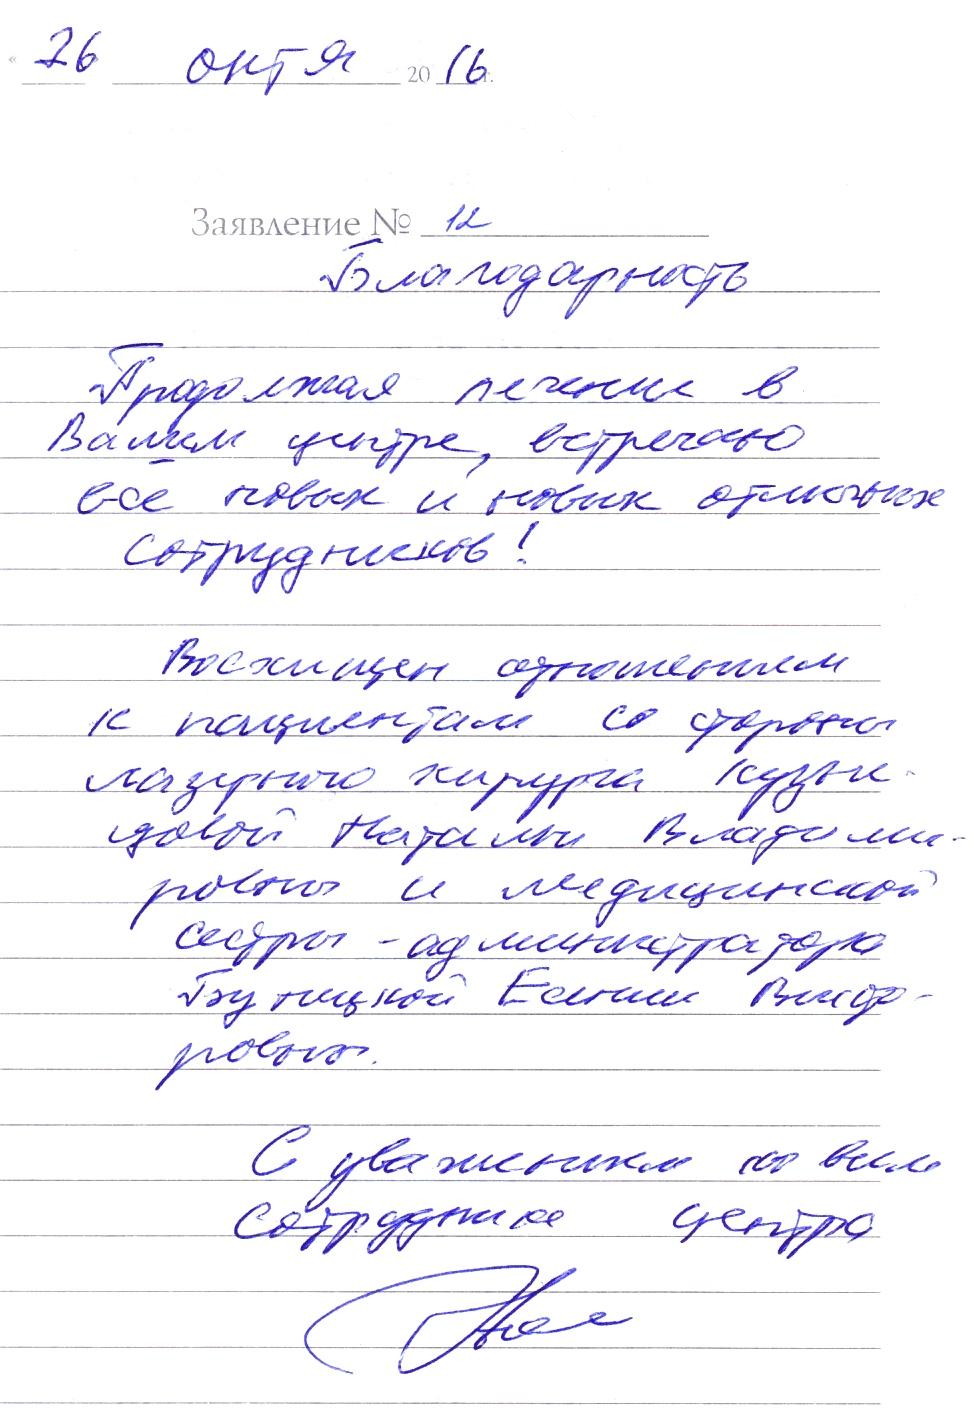 « 26 октя 2016 г.
Заявление № 12
Благодарность
Продолжая лечение в
Вашем центре, встречаю
все новых и новых отличных
сотрудников!
Восхищен отношением
к пациентам со стороны
лазерного хирурга
довой Натальи Владими-
ровны и медицинской
сестры - администратора
Буницкой Ксении Викто-
ровны.
С уважением ко всем
сотрудникам центра